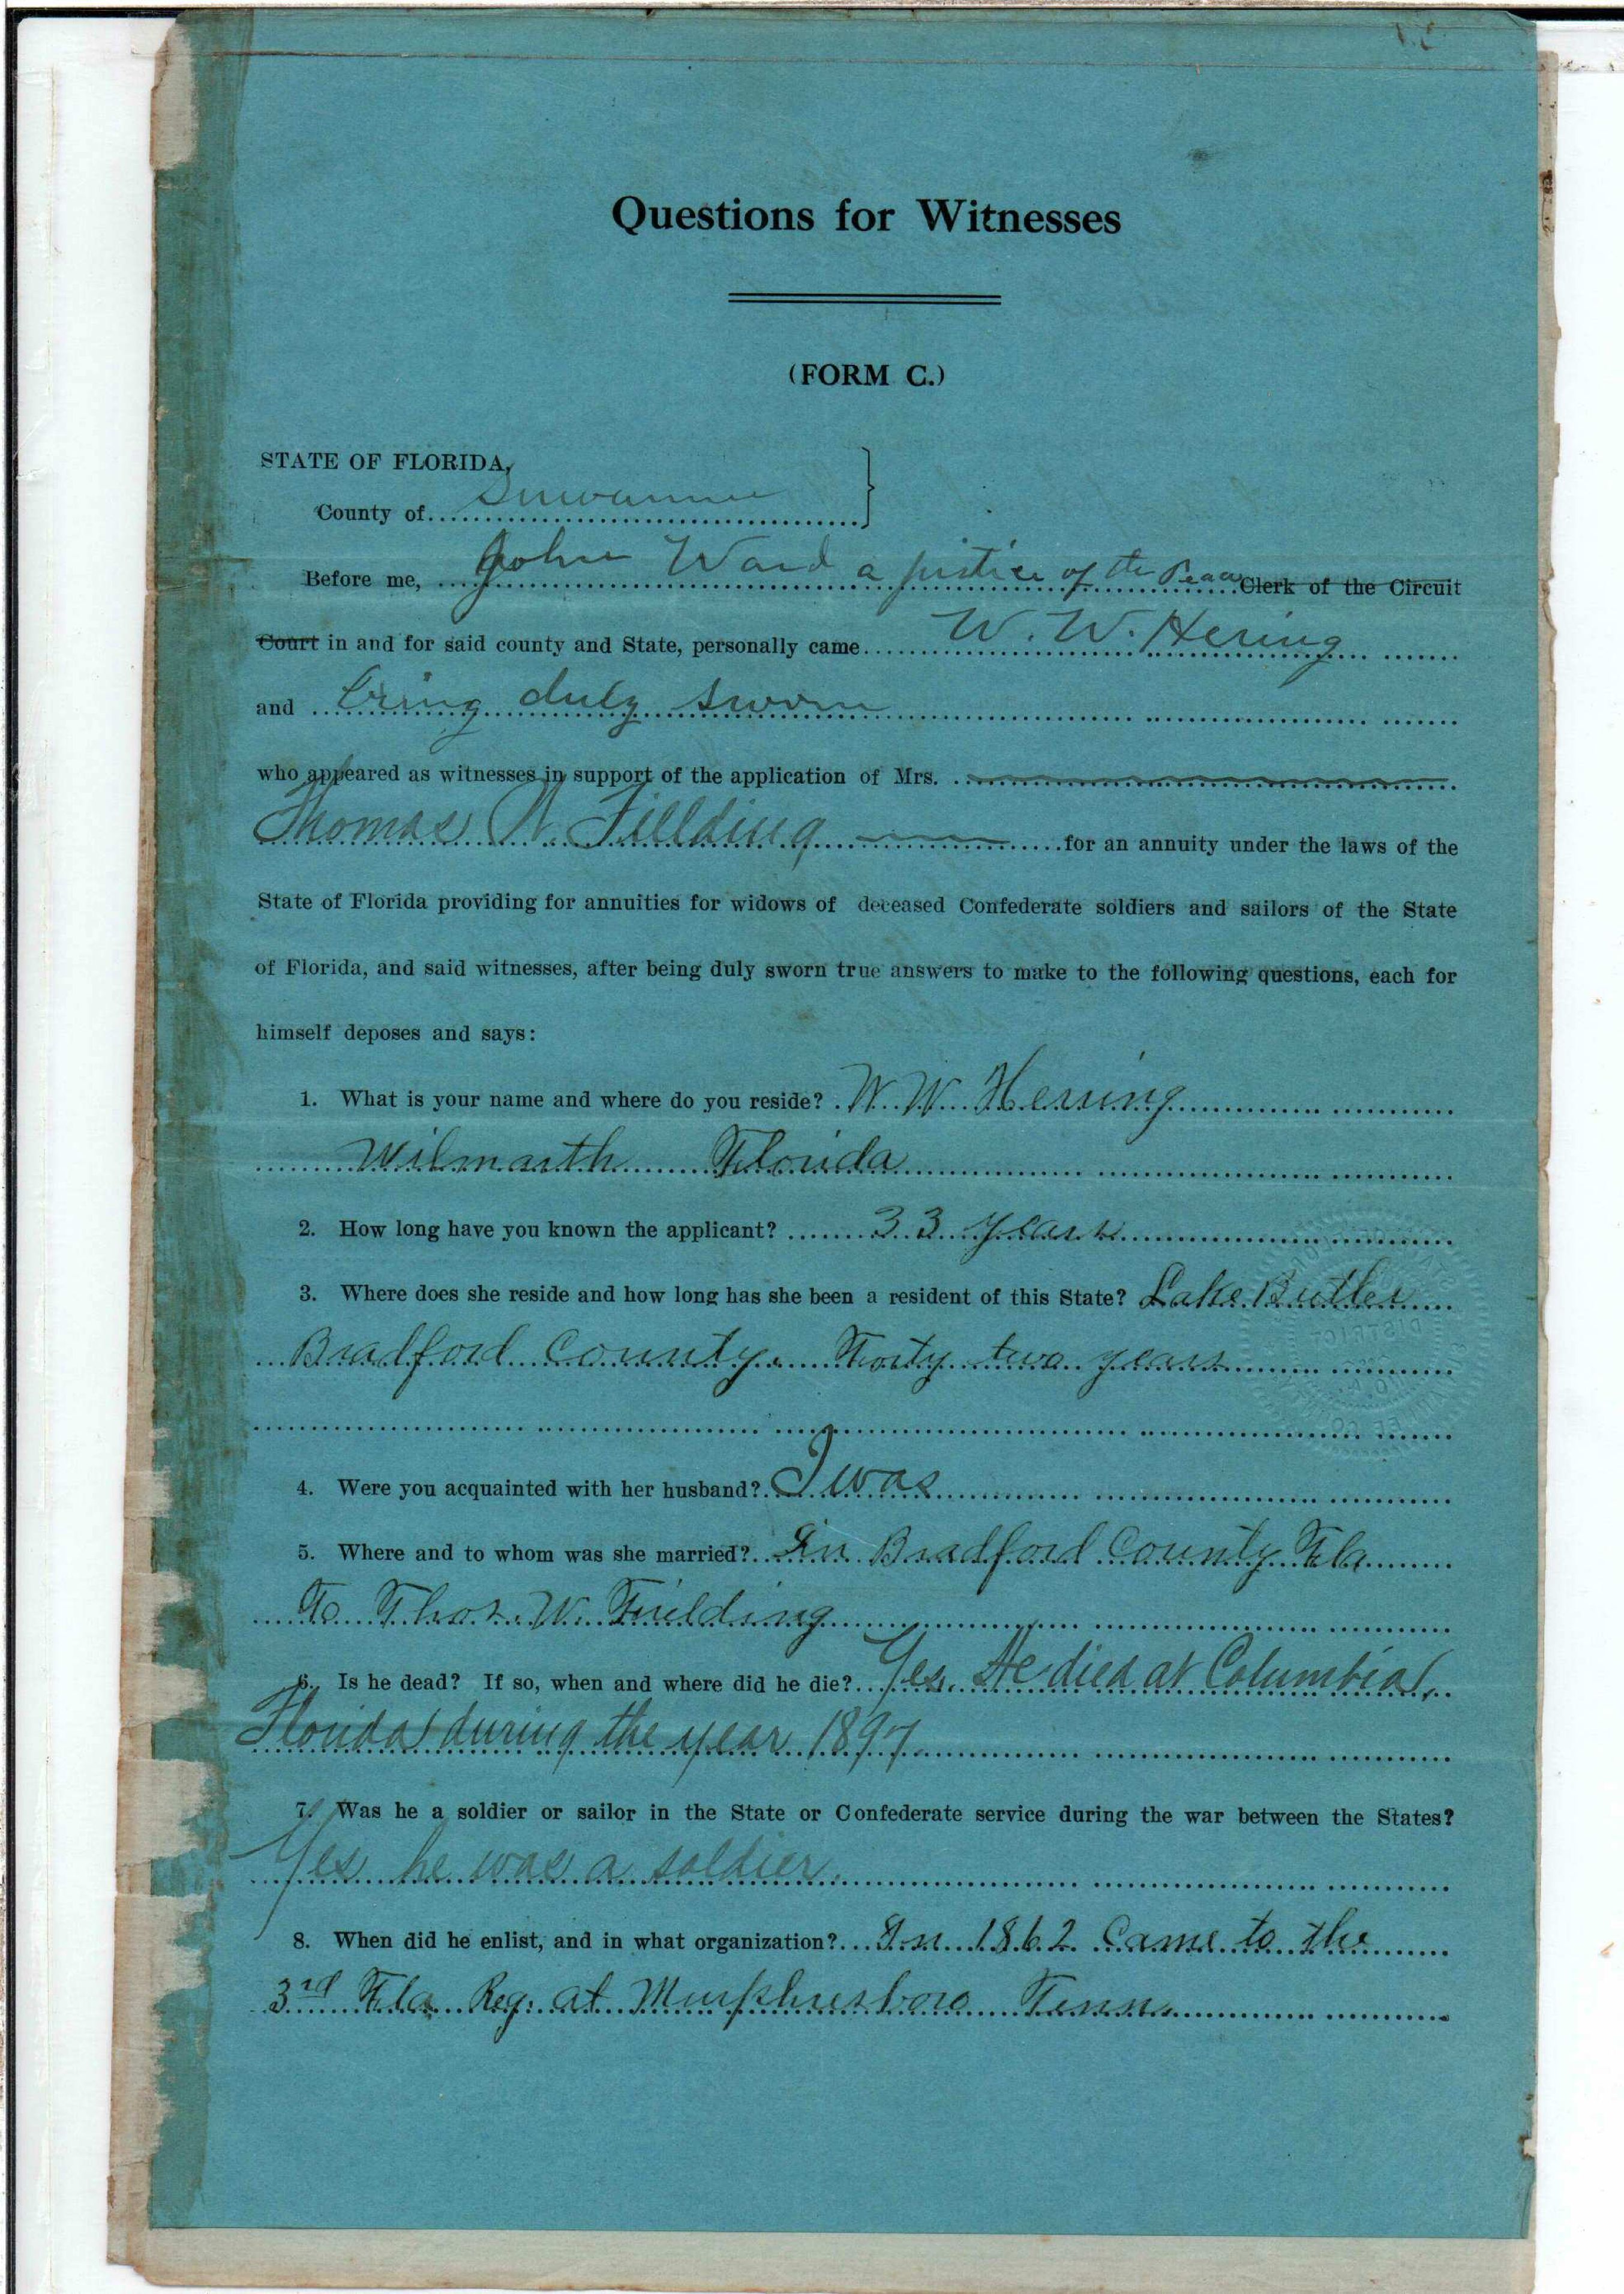 Questions for Witnesses
(FORM C.)
STATE OF FLORIDA,
County of Suwannee
Before me, John Ward a justice of the Peace Clerk of the Circuit
Court in and for said county and State, personally came W. W. Hering
and being duly sworn
who appeared as witnesses in support of the application of Mrs.
Thomas W. Fillding for an annuity under the laws of the
State of Florida providing for annuities for widows of deceased Confederate soldiers and sailors of the State
of Florida, and said witnesses, after being duly sworn true answers to make to the following questions, each for
himself deposes and says:
1. What is your name and where do you reside? W. W. Herring
Wilmarth Florida
2. How long have you known the applicant? 33 years
3. Where does she reside and how long has she been a resident of this State? Lake Butler
Bradford County. Forty two years
4. Were you acquainted with her husband? I was
5. Where and to whom was she married? In Bradford County Fla
To Thos. W. Fielding
6. Is he dead? If so, when and where did he die? Yes. He died at Columbia,
Florida during the year 1897
7. Was he a soldier or sailor in the State or Confederate service during the war between the States?
Yes he was a soldier.
8. When did he enlist, and in what organization? In 1862 Came to the
3rd Fla Reg. at Murphresboro Tenn.